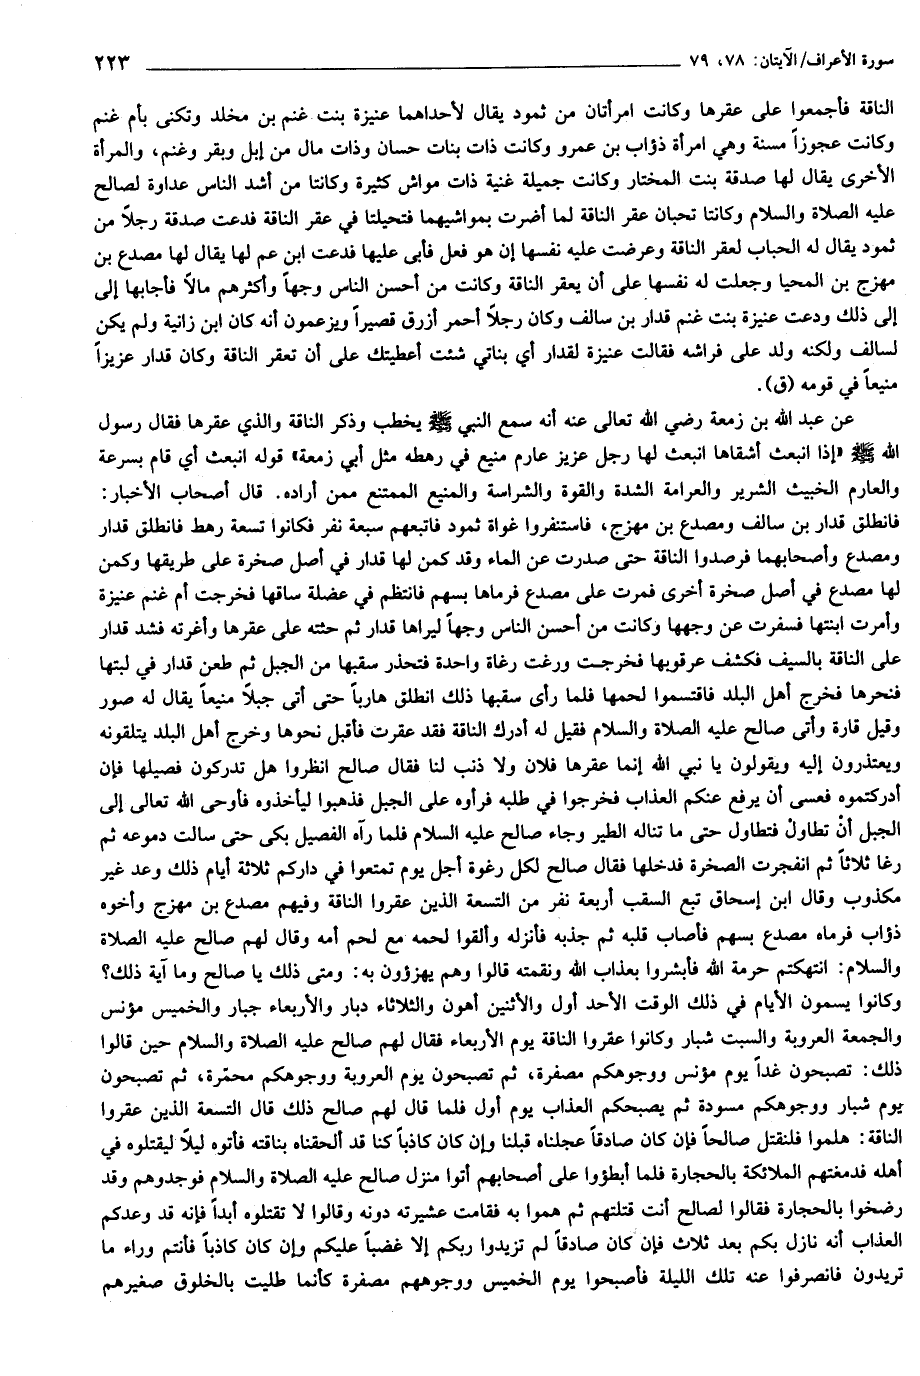 سورة الأعراف/ الآيتان: ٧٨، ٧٩ ٢٢٣
الناقة فأجمعوا على عقرها وكانت امرأتان من ثمود يقال لأحداهما عنيزة بنت غنم بن مخلد وتكنى بأم غنم
وكانت عجوزاً مسنة وهي امرأة ذؤاب بن عمرو وكانت ذات بنات حسان وذات مال من إبل وبقر وغنم، والمرأة
الأخرى يقال لها صدقة بنت المختار وكانت جميلة غنية ذات مواش كثيرة وكانتا من أشد الناس عداوة لصالح
عليه الصلاة والسلام وكانتا تحبان عقر الناقة لما أضرت بمواشيهما فتحيلتا في عقر الناقة فدعت صدقة رجلاً من
ثمود يقال له الحباب لعقر الناقة وعرضت عليه نفسها إن هو فعل فأبى عليها فدعت ابن عم لها يقال لها مصدع بن
مهزج بن المحيا وجعلت له نفسها على أن يعقر الناقة وكانت من أحسن الناس وجهاً وأكثرهم مالاً فأجابها إلى
إلى ذلك ودعت عنيزة بنت غنم قدار بن سالف وكان رجلاً أحمر أزرق قصيراً ويزعمون أنه كان ابن زانية ولم يكن
لسالف ولكنه ولد على فراشه فقالت عنيزة لقدار أي بناتي شئت أعطيتك على أن تعقر الناقة وكان قدار عزيزاً
منيعاً في قومه (ق).
عن عبد الله بن زمعة رضي الله تعالى عنه أنه سمع النبي ﷺ يخطب وذكر الناقة والذي عقرها فقال رسول
الله ﷺ «إذا انبعث أشقاها انبعث لها رجل عزيز عارم منيع في رهطه مثل أبي زمعة» قوله انبعث أي قام بسرعة
والعارم الخبيث الشرير والعرامة الشدة والقوة والشراسة والمنيع الممتنع ممن أراده. قال أصحاب الأخبار:
فانطلق قدار بن سالف ومصدع بن مهزج، فاستنفروا غواة ثمود فاتبعهم سبعة نفر فكانوا تسعة رهط فانطلق قدار
ومصدع وأصحابهما فرصدوا الناقة حتى صدرت عن الماء وقد كمن لها قدار في أصل صخرة على طريقها وكمن
لها مصدع في أصل صخرة أخرى فمرت على مصدع فرماها بسهم فانتظم في عضلة ساقها فخرجت أم غنم عنيزة
وأمرت ابنتها فسفرت عن وجهها وكانت من أحسن الناس وجهاً ليراها قدار ثم حثته على عقرها وأغرته فشد قدار
على الناقة بالسيف فكشف عرقوبها فخرجت ورغت رغاة واحدة فتحذر سقبها من الجبل ثم طعن قدار في لبتها
فنحرها فخرج أهل البلد فاقتسموا لحمها فلما رأى سقبها ذلك انطلق هارباً حتى أتى جبلاً منيعاً يقال له صور
وقيل قارة وأتى صالح عليه الصلاة والسلام فقيل له أدرك الناقة فقد عقرت فأقبل نحوها وخرج أهل البلد يتلقونه
ويعتذرون إليه ويقولون يا نبي الله إنما عقرها فلان ولا ذنب لنا فقال صالح انظروا هل تدركون فصيلها فإن
أدركتموه فعسى أن يرفع عنكم العذاب فخرجوا في طلبه فرأوه على الجبل فذهبوا ليأخذوه فأوحى الله تعالى إلى
الجبل أنْ تطاولْ فتطاول حتى ما تناله الطير وجاء صالح عليه السلام فلما رآه الفصيل بكى حتى سالت دموعه ثم
رغا ثلاثاً ثم انفجرت الصخرة فدخلها فقال صالح لكل رغوة أجل يوم تمتعوا في داركم ثلاثة أيام ذلك وعد غير
مكذوب وقال ابن إسحاق تبع السقب أربعة نفر من التسعة الذين عقروا الناقة وفيهم مصدع بن مهزج وأخوه
ذؤاب فرماه مصدع بسهم فأصاب قلبه ثم جذبه فأنزله وألقوا لحمه مع لحم أمه وقال لهم صالح عليه الصلاة
والسلام: انتهكتم حرمة الله فأبشروا بعذاب الله ونقمته قالوا وهم يهزؤون به: ومتى ذلك يا صالح وما آية ذلك؟
وكانوا يسمون الأيام في ذلك الوقت الأحد أول والأثنين أهون والثلاثاء دبار والأربعاء جبار والخميس مؤنس
والجمعة العروبة والسبت شبار وكانوا عقروا الناقة يوم الأربعاء فقال لهم صالح عليه الصلاة والسلام حين قالوا
ذلك: تصبحون غداً يوم مؤنس ووجوهكم مصفرة، ثم تصبحون يوم العروبة ووجوهكم محمّرة، ثم تصبحون
يوم شبار ووجوهكم مسودة ثم يصبحكم العذاب يوم أول فلما قال لهم صالح ذلك قال التسعة الذين عقروا
الناقة: هلموا فلنقتل صالحاً فإن كان صادقاً عجلناه قبلنا وإن كان كاذباً كنا قد ألحقناه بناقته فأتوه ليلاً ليقتلوه في
أهله فدمغتهم الملائكة بالحجارة فلما أبطؤوا على أصحابهم أتوا منزل صالح عليه الصلاة والسلام فوجدوهم وقد
رضخوا بالحجارة فقالوا لصالح أنت قتلتهم ثم هموا به فقامت عشيرته دونه وقالوا لا تقتلوه أبداً فإنه قد وعدكم
العذاب أنه نازل بكم بعد ثلاث فإن كان صادقاً لم تزيدوا ربكم إلا غضباً عليكم وإن كان كاذباً فأنتم وراء ما
تريدون فانصرفوا عنه تلك الليلة فأصبحوا يوم الخميس ووجوههم مصفرة كأنما طليت بالخلوق صغيرهم